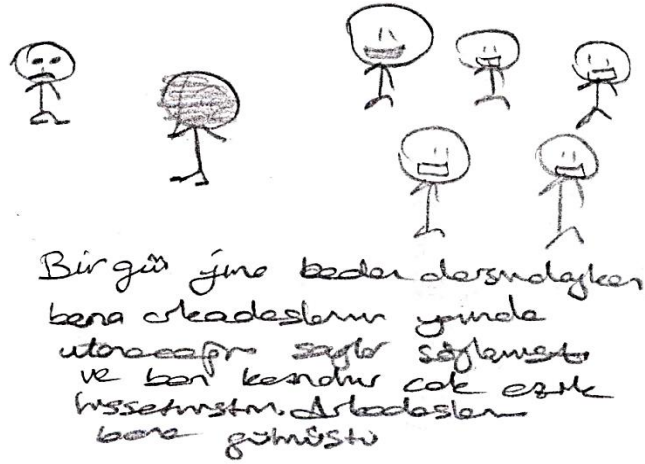 Bir gün yine beden dersindeyken
bana arkadaslarımın yanında
utanacağım şeyler söylemişti
ve ben kendimi cok ezik
hissetmiştim. Arkadaslarım
bana gülmüştü